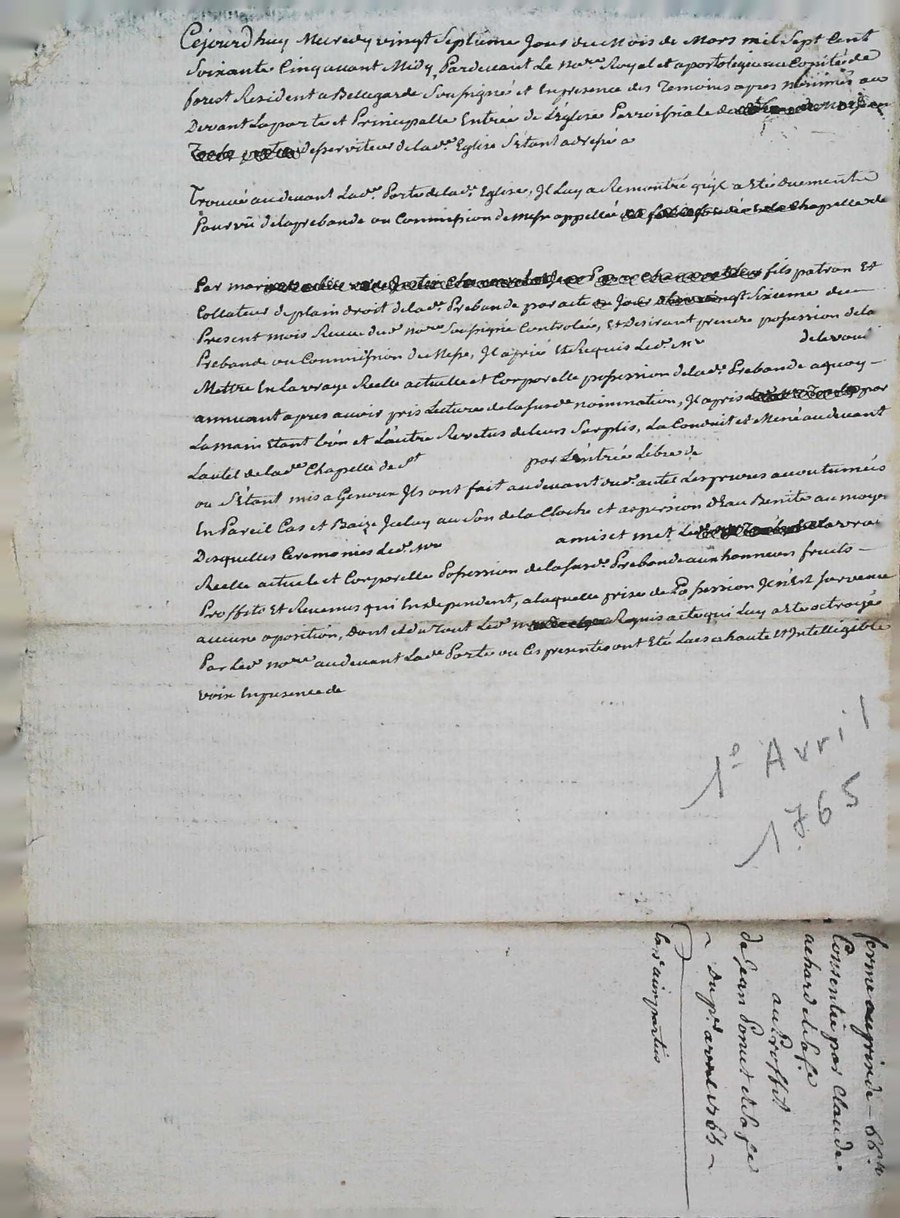 Cejourdhuy Mecredy vingt Septieme Jour du Mois de Mars mil Sept Cent
Soixante Cinq avant Midy Pardevant Le nore Royal et apostolique au Comté de
forest Resident a Bellegarde Soussigné et En presence des Temoins apres nommés au
Devant La porte et Principalle Entrée de L'Eglise Parroissiale
desserviteur de lade Eglise S'Etant adressé a
Trouvé audevant Lade Porte de lade Eglise, Il Luy a Remontré qu'il a Eté Duement
Pourvû de la prebande ou Commission de Messe appellée Chapelle de
Par fils patron Et
Collateur de plain droit de lade Prebande par acte Sixieme du
Present mois Receu dud nore Soussigné Controlée, Et desirant prendre possession de la
Prebande ou Commission de Messe, Il a prié Et Requis Led. Mr de le vouloir
Mettre En la vraye Reelle actuelle et Corporelle possession de lade Prebande a quoy
annuant apres avoir pris Lecture de la susde nomination, Il a pris par
La main Etant L'un et L'autre Revetus de leurs Surplis, La Conduit et Mené audevant
Lautel de lade Chapelle de St par L'entrée Libre de
ou S'Etant mis a Genoux Ils ont fait audevant dud. autel Les prieres accoutumées
En Pareil Cas et Baizé Iceluy au Son de la Cloche et aspersion d'Eau Benite au moyen
Desquelles Ceremonies Led. Mr a mis et met Led. La vraye
Reelle actuelle et Corporelle Possession de la susde Prebande aux honneurs fruits
Proffits Et Revenus qui En dependent, a laquelle prise de Possession Il n'Est survenue
aucune oposition, Dont et du Tout Led. Requis acte qui Luy a Eté octroyé
Par Led. nore audevant Lade Porte ou Ces presentes ont Eté Lues a haute Et Intelligible
voix En presence de
1e Avril
1765
ferme au prix de 66 #
Consentie par Claude
achard et sa fe
au Proffit
de Jean Ponet et sa fe
Du pr avril 1765